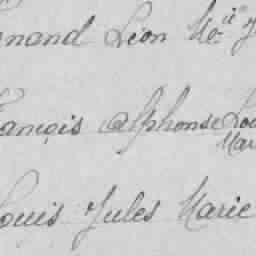 nand Léon M
ançois Alphonse Lou
Mar
Louis Jules Marie